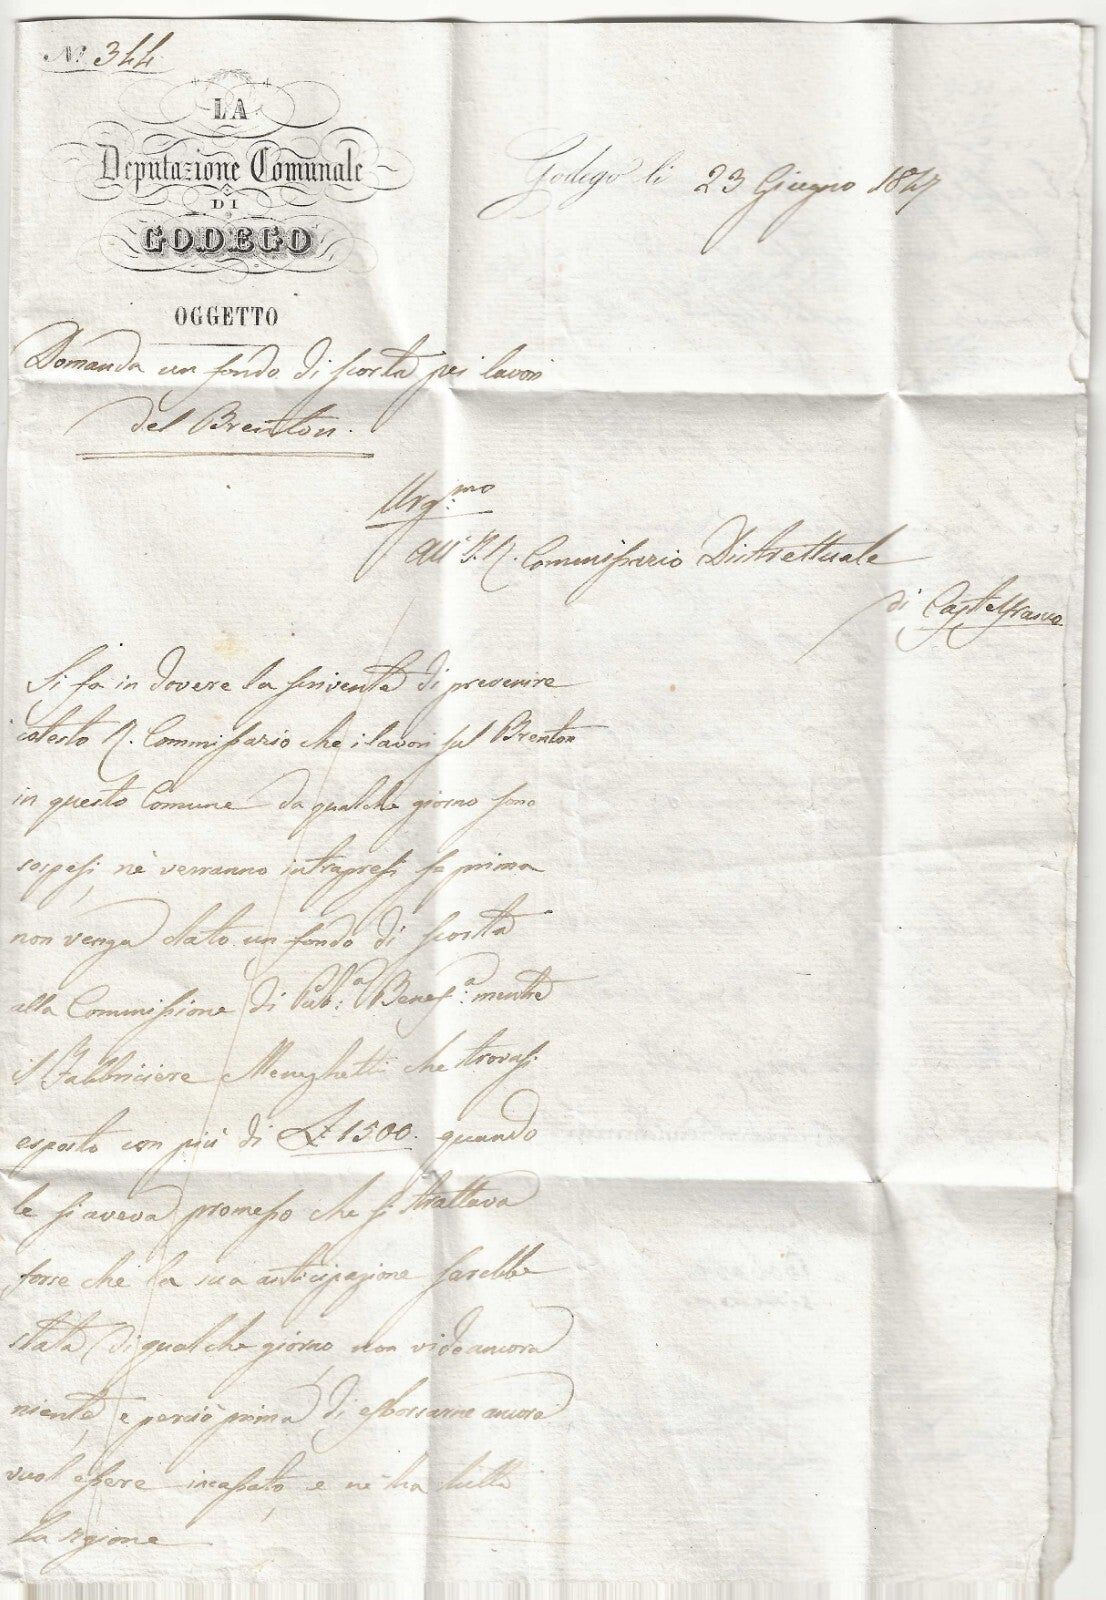 N.° 344
LA
Deputazione Comunale
DI
GODEGO
Godego li 23 Giugno 1847
OGGETTO
Domanda un fondo di scorta pei lavori
del Brenton.
Urg.mo
All' I. R. Commissario Distrettuale
di Castelfranco
Si fa in dovere la scrivente di prevenire
cotesto R. Commissario che i lavori sul Brenton
in questo Comune da qualche giorno sono
sospesi, nè verranno intrapresi se prima
non venga dato un fondo di scorta
alla Commissione di Pub.a Benef.a mentre
il Fabbriciere Meneghetti che trovasi
esposto con più di L. 1500. quando
le si aveva promesso che si trattava
forse che la sua anticipazione sarebbe
stata di qualche giorno, non vide ancora
niente, e perciò prima di esborsarne ancora
vuol essere incassato, e ne ha tutta
la ragione